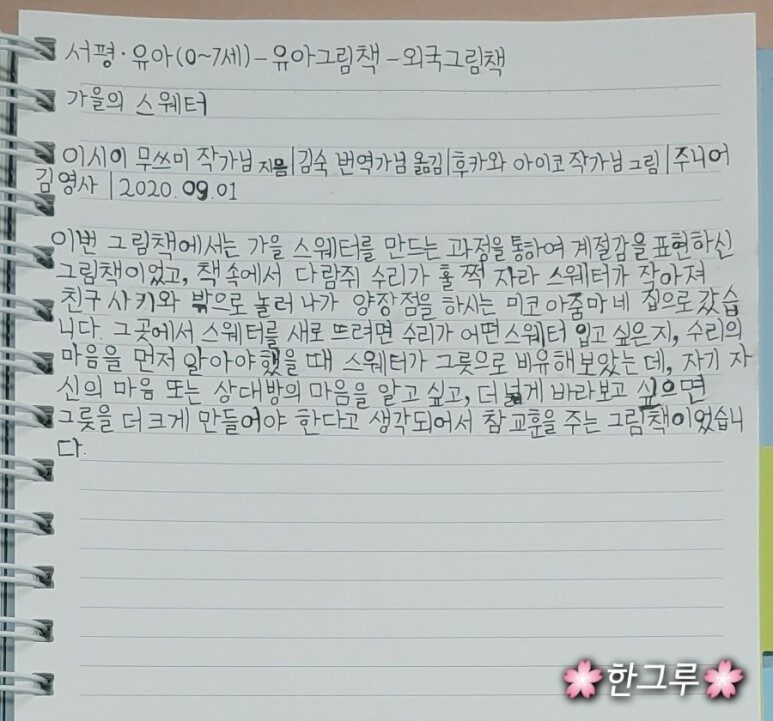 서평·유아(0~7세)-유아그림책-외국그림책
가을의 스웨터
이시이 무쓰미 작가님 지음|김숙 번역가님 옮김|후카와 아이코 작가님 그림|주니어
김영사|2020.09.01
이번 그림책에서는 가을 스웨터를 만드는 과정을 통하여 계절감을 표현하신
그림책이었고, 책 속에서 다람쥐 수리가 훌쩍 자라 스웨터가 작아져
친구 사키와 밖으로 놀러 나가 양장점을 하시는 미코 아줌마네 집으로 갔습
니다. 그곳에서 스웨터를 새로 뜨려면 수리가 어떤 스웨터 입고 싶은지, 수리의
마음을 먼저 알아야 했을 때 스웨터가 그릇으로 비유해 보았는데, 자기 자
신의 마음 또는 상대방의 마음을 알고 싶고, 더 넓게 바라보고 싶으면
그릇을 더 크게 만들어야 한다고 생각되어서 참 교훈을 주는 그림책이었습니
다.
🌸한그루🌸